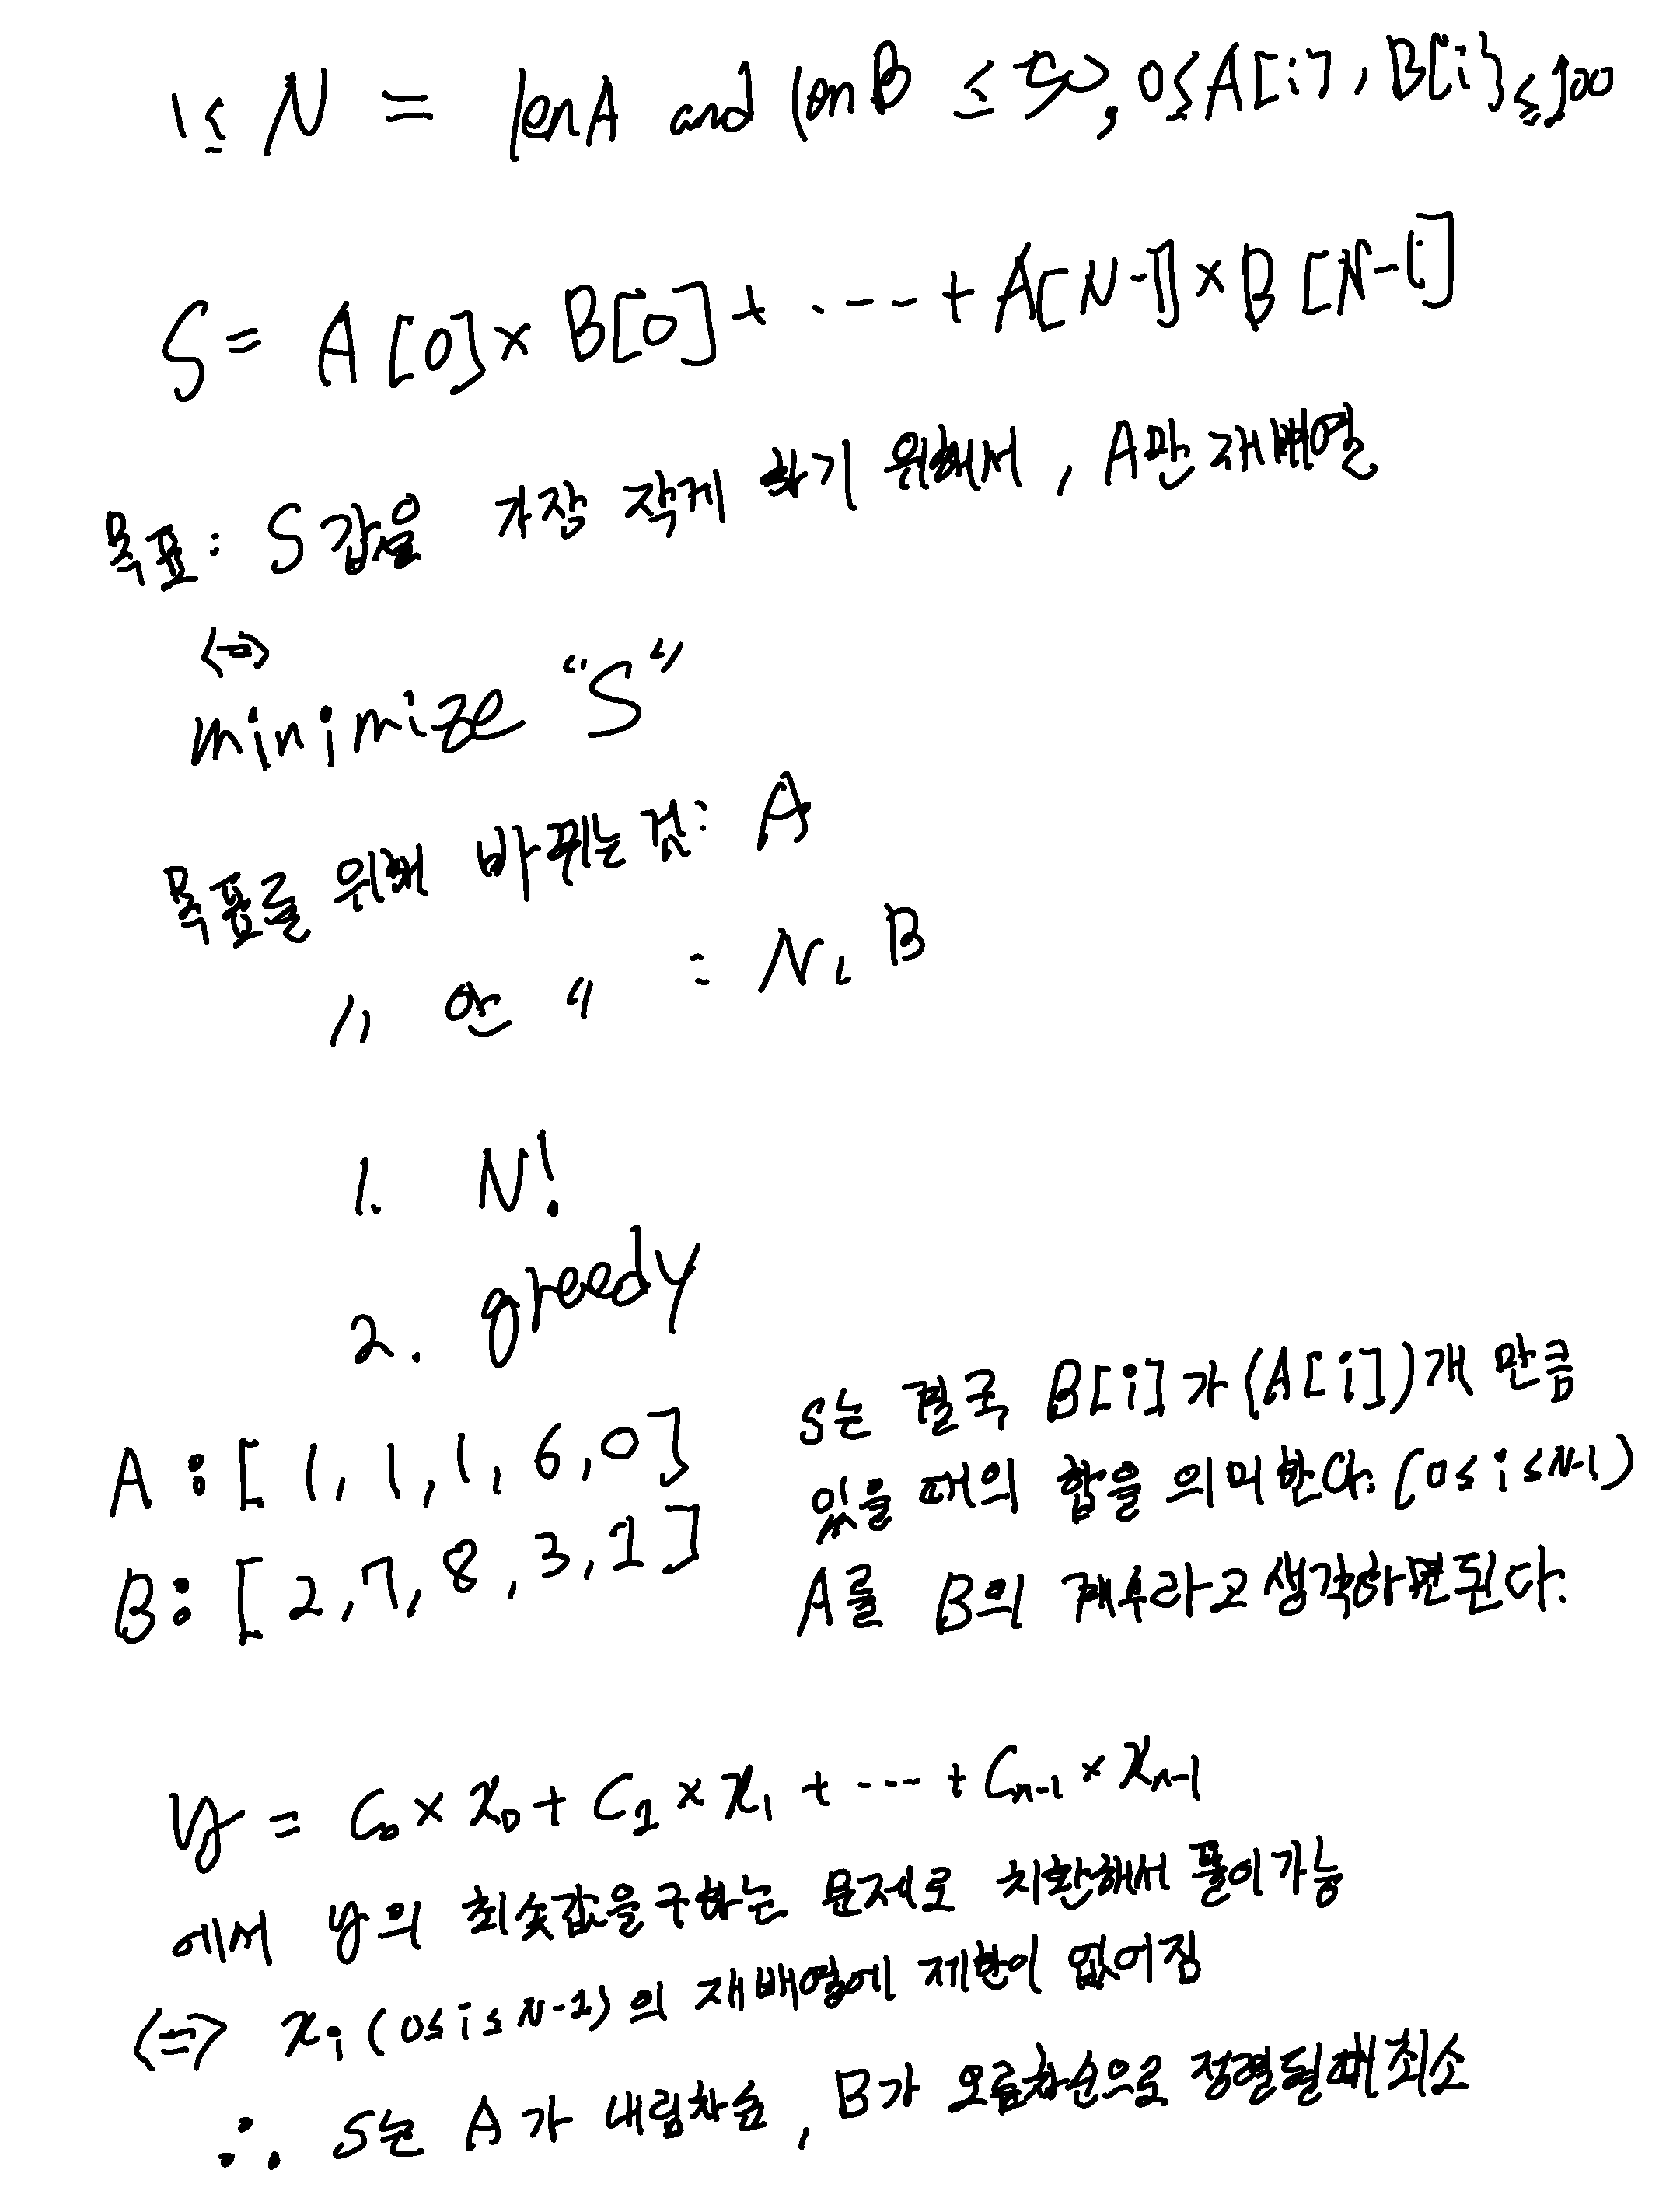 1 ≤ N = lenA and lenB ≤ 50, 0≤A[i], B[i]≤100
S = A[0]×B[0]+ ···· + A[N-1]×B[N-1]
목표: S 값을 가장 작게 하기 위해서, A만 재배열
<=>
minimize "S"
목표를 위해 바뀌는 것: A
〃 안 〃 : N, B
1. N!
2. greedy
A : [1, 1, 1, 6, 0]
B : [2, 7, 8, 3, 1]
S는 결국 B[i]가 (A[i])개 만큼
있을 때의 합을 의미한다. (0≤i≤N-1)
A를 B의 계수라고 생각하면된다.
y = C₀ × x₀ + C₁ × x₁ + ···· + Cn-1 × xn-1
에서 y의 최솟값을 구하는 문제로 치환해서 풀이가능
<=> xi (0≤i≤N-1)의 재배열에 제한이 없어짐
∴ S는 A가 내림차순, B가 오름차순으로 정렬될때 최소